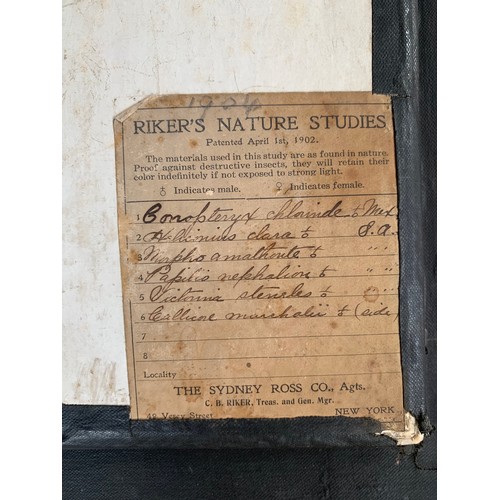 1904
RIKER'S NATURE STUDIES
Patented April 1st, 1902.
The materials used in this study are as found in nature.
Proof against destructive insects, they will retain their
color indefinitely if not exposed to strong light.
♂ Indicates male. ♀ Indicates female.
1 Gonopteryx chlorinde ♂ Mex
2 clara ♂ S.A.
3 Morpho amathonte ♂ " "
4 Papilio nephalion ♂ " "
5 Victorina steneles ♂ " "
6 ♂ (side)
7
8
Locality
THE SYDNEY ROSS CO., Agts.
C. B. RIKER, Treas. and Gen. Mgr.
49 Vesey Street NEW YORK